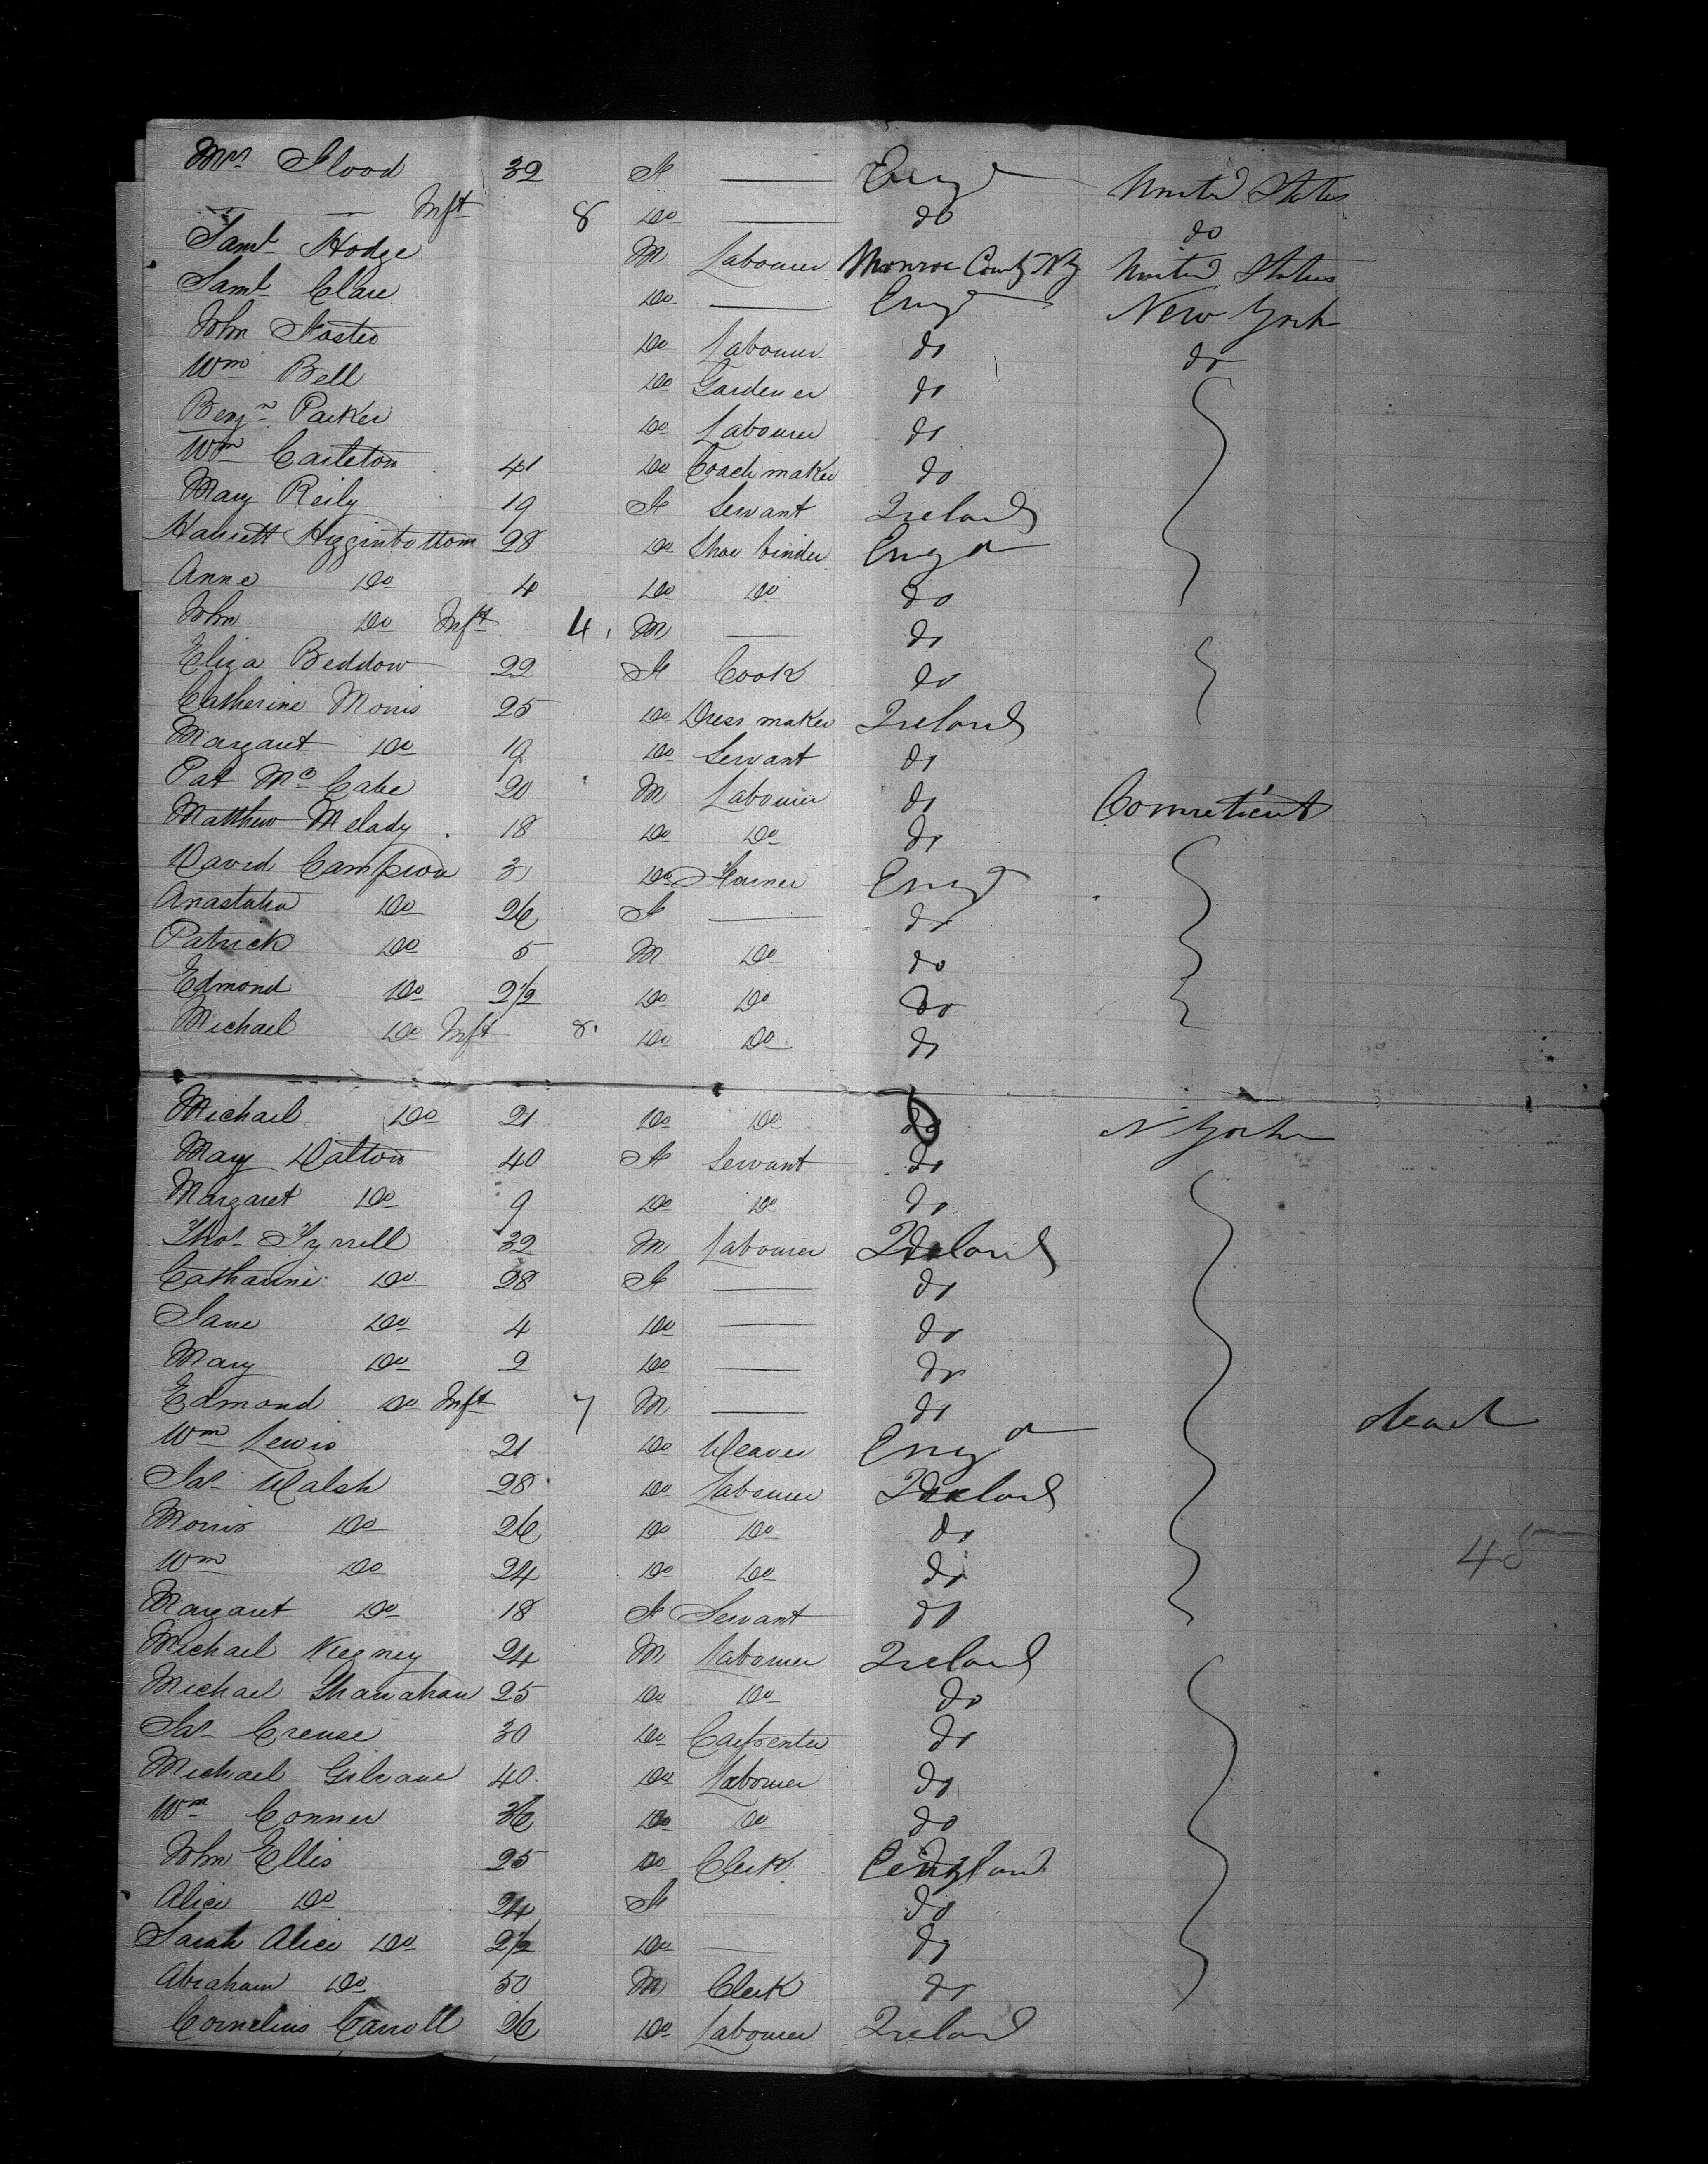 Mrs Flood 32 F — Engd United States
— — Inft 8 Do — do do
Saml Hodge M Labourer Monroe County NY United States
Saml Clare Do — Engd New York
John Foster Do Labourer do do
Wm Bell Do Gardener do
Benjn Parker Do Labourer do
Wm Carleton 41 Do Coach maker do
Mary Reily 19 F Servant Ireland
Harriett Higginbottom 28 Do Shoe binder Engd
Anne Do 4 Do Do do
John Do Inft 4 M — do
Eliza Beddow 22 F Cook do
Catherine Morris 25 Do Dress maker Ireland
Margaret Do 19 Do Servant do
Pat Mc Cabe 20 M Labourer do Conneticut
Matthew Melady 18 Do Do do
David Campion 31 Do Farmer Engd
Anastatia Do 26 F — do
Patrick Do 5 M Do do
Edmond Do 2 1/2 Do Do do
Michael Do Inft 8 Do Do do
Michael Do 21 Do Do do N York
Mary Dalton 40 F Servant do
Margaret Do 9 Do Do do
Thos Tyrrell 32 M Labourer Ireland
Catharine Do 28 F — do
Jane Do 4 Do — do
Mary Do 2 Do — do
Edmond Do Inft 7 M — do dead
Wm Lewis 21 Do Weaver Engd
Jas Walsh 28 Do Labourer Ireland
Morris Do 26 Do Do do
Wm Do 24 Do Do do 45
Margaret Do 18 F Servant do
Michael 24 M Labourer Ireland
Michael Shanahan 25 Do Do do
Jas Crense 30 Do Carpenter do
Michael Gilrane 40 Do Labourer do
Wm Conner 36 Do Do do
John Ellis 25 Do Clerk England
Alice Do 24 F do
Sarah Alice Do 2 1/2 Do — do
Abraham Do 50 M Clerk do
Cornelius Carroll 26 Do Labourer Ireland